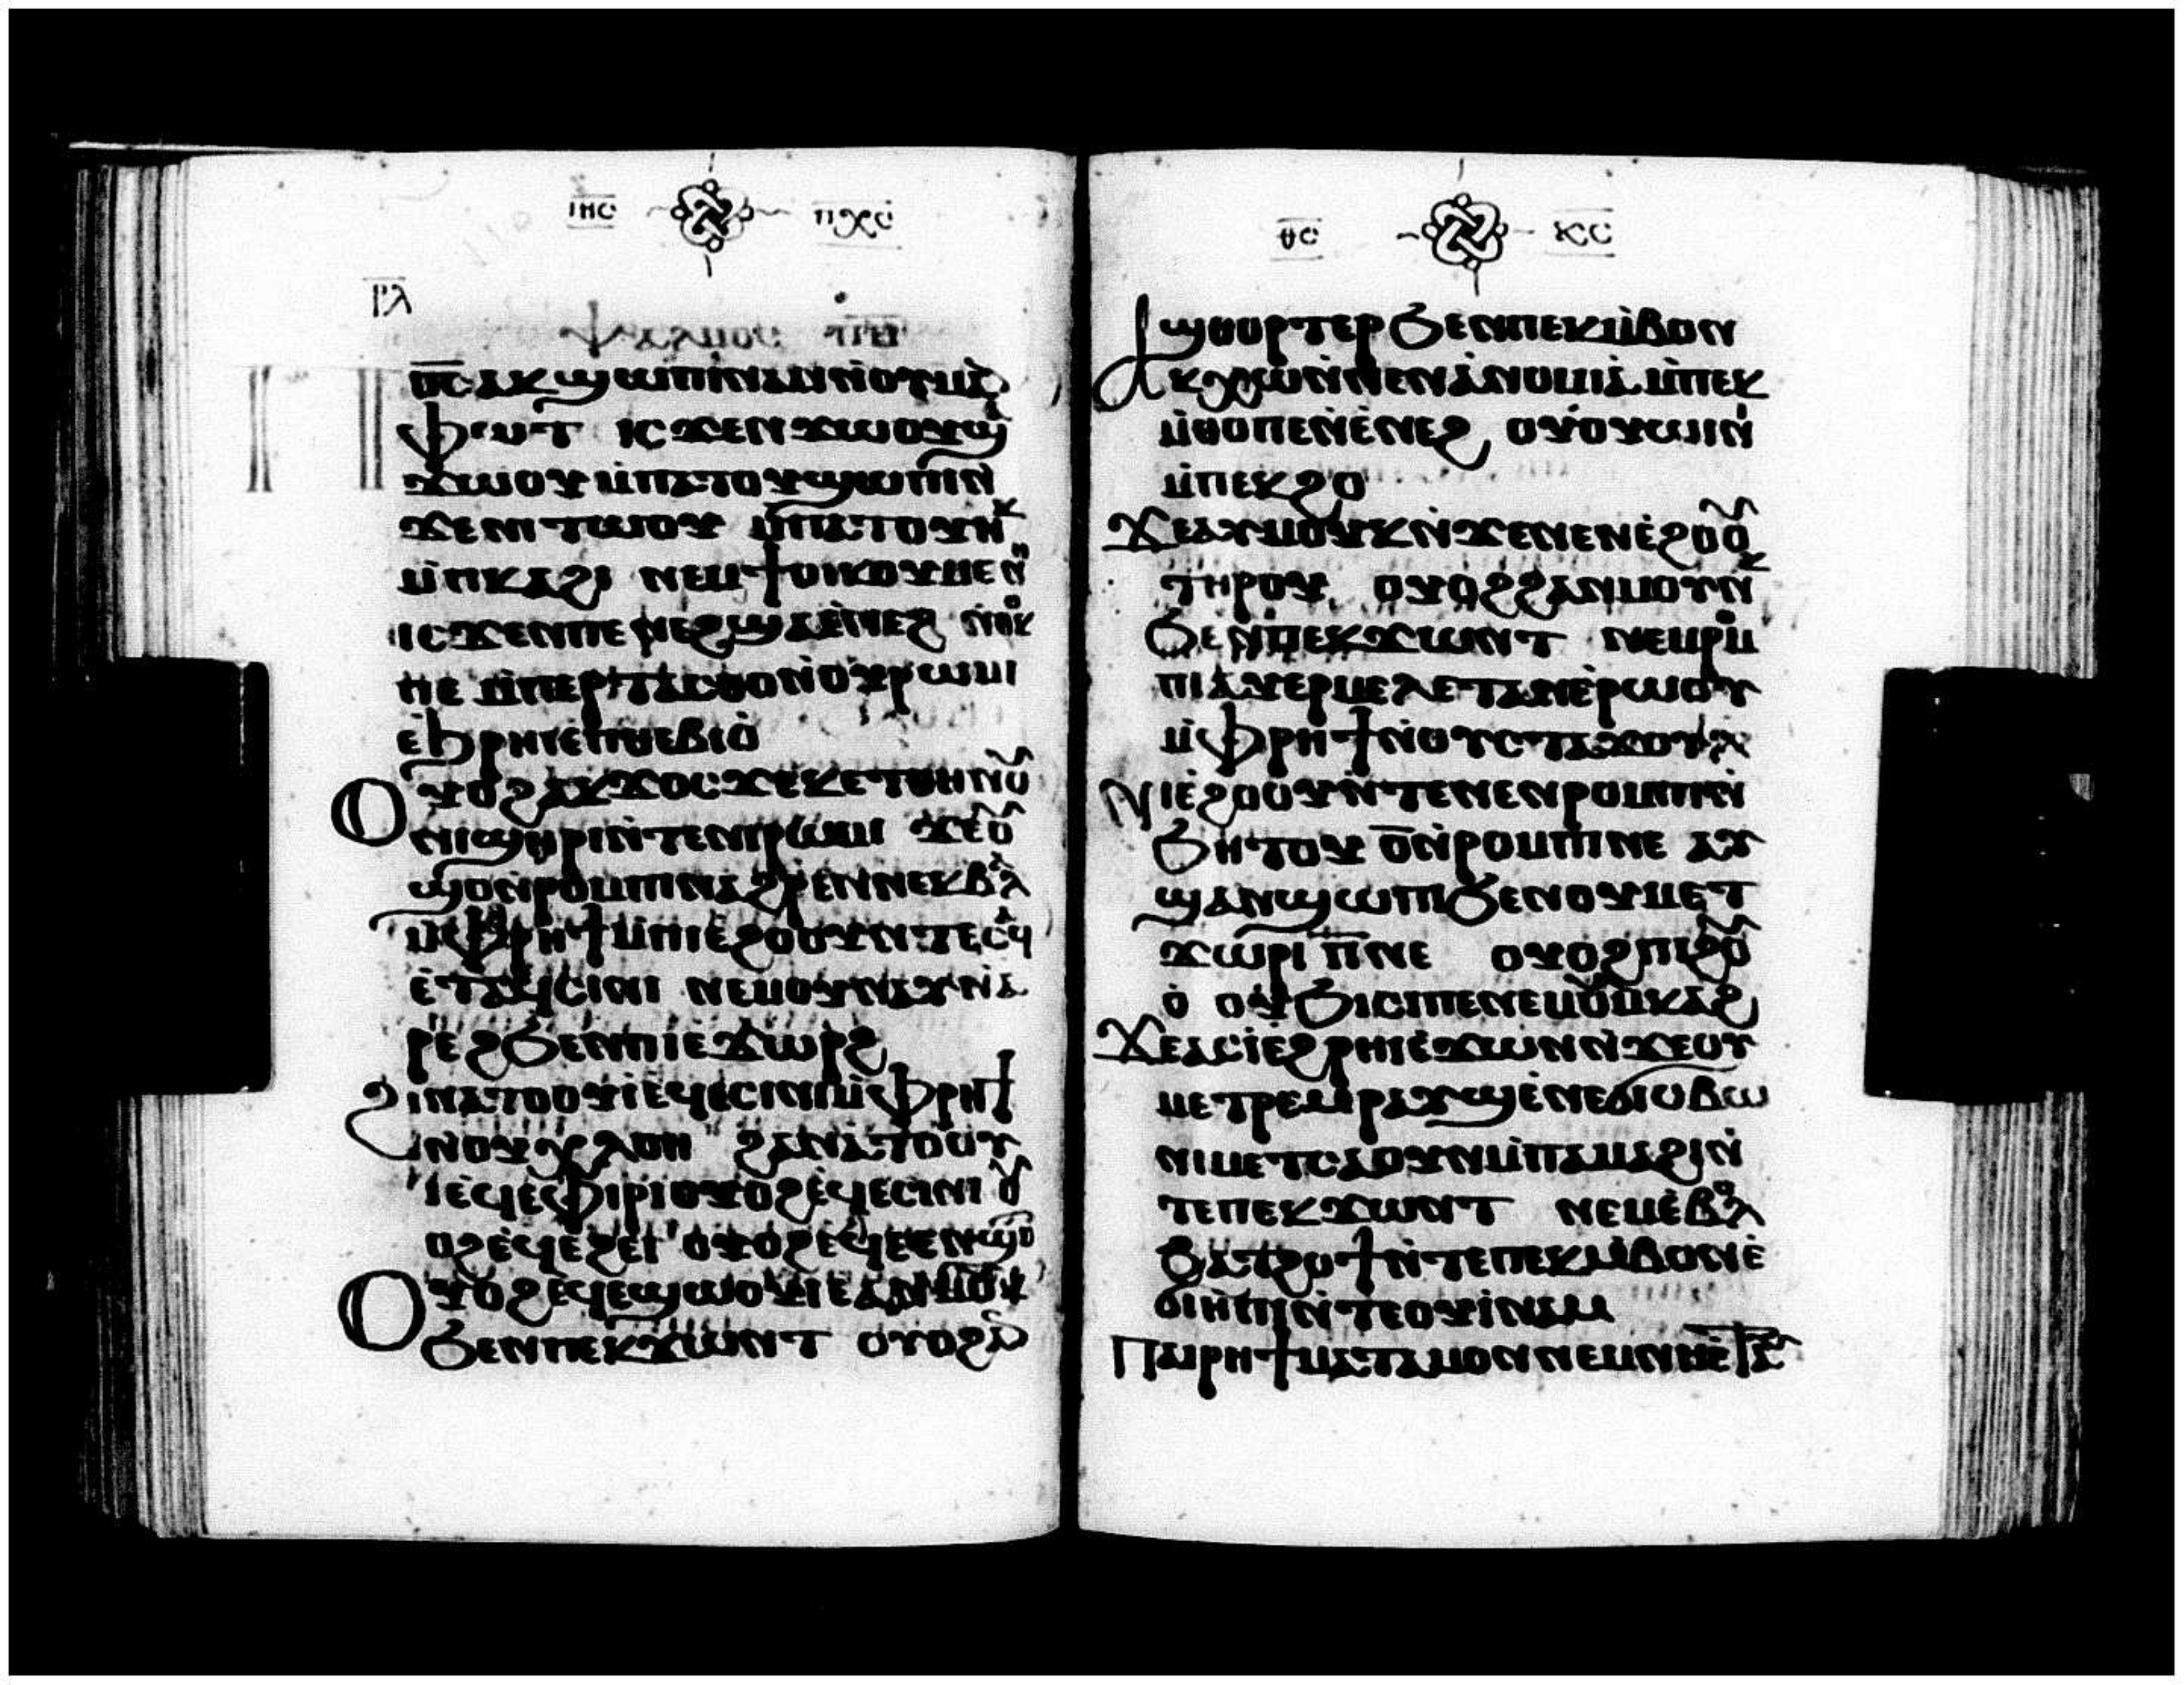 ⲓⲏⲥ ⲡⲭⲥ
ⲣⲗ
ⲯⲁⲗⲙⲟⲥ ⲡⲑ
ⲡ⳪ ⲁⲕϣⲱⲡⲓ ⲛⲁⲛ ⲛⲟⲩⲙⲁ
ⲫⲱⲧ ⲓⲥϫⲉⲛ ϫⲱⲟⲩ ϣⲁ
ϫⲱⲟⲩ ⲙⲡⲁⲧⲟⲩϣⲱⲡⲓ ⲛ
ϫⲉ ⲛⲓⲧⲱⲟⲩ ⲙⲡⲁⲧⲟⲩⲑⲁⲙⲓⲟ
ⲙⲡⲕⲁϩⲓ ⲛⲉⲙ ϯⲟⲓⲕⲟⲩⲙⲉⲛⲏ
ⲓⲥϫⲉⲛ ⲡⲉⲛⲉϩ ϣⲁ ⲉⲛⲉϩ ⲛⲑⲟⲕ
ⲡⲉ ⲙⲡⲉⲣⲧⲁⲥⲑⲟ ⲛⲟⲩⲣⲱⲙⲓ
ⲉϧⲣⲏⲓ ⲉⲡⲑⲉⲃⲓⲟ
ⲟⲩⲟϩ ⲁⲕϫⲟⲥ ϫⲉ ⲕⲉⲧ ⲑⲏⲛⲟⲩ
ⲛⲓϣⲏⲣⲓ ⲛⲧⲉ ⲛⲓⲣⲱⲙⲓ ϫⲉ ⲟⲩ
ϣⲟ ⲛⲣⲟⲙⲡⲓ ⲛⲁϩⲣⲉⲛ ⲛⲉⲕⲃⲁⲗ
ⲙⲫⲣⲏϯ ⲙⲡⲓⲉϩⲟⲟⲩ ⲛⲧⲉ ⲥⲁϥ
ⲉⲧⲁϥⲥⲓⲛⲓ ⲛⲉⲙ ⲟⲩⲛⲁⲩ ⲛⲁ
ⲣⲉϩ ϧⲉⲛ ⲡⲓⲉϫⲱⲣϩ
ϩⲓⲛⲁⲧⲟⲟⲩⲓ ⲉϥⲉⲥⲓⲛⲓ ⲙⲫⲣⲏϯ
ⲛⲟⲩⲭⲗⲟⲏ ϩⲁⲛⲁⲧⲟⲟⲩ
ⲓ ⲉϥⲉⲫⲓⲣⲓ ⲟⲩⲟϩ ⲉϥⲉⲥⲓⲛⲓ ⲟⲩ
ⲟϩ ⲉϥⲉϩⲉⲓ ⲟⲩⲟϩ ⲉϥⲉⲉⲛϣⲟⲧ
ⲟⲩⲟϩ ⲉϥⲉϣⲱⲟⲩⲓ ⲉⲁⲛⲙⲟⲩⲛⲕ
ϧⲉⲛ ⲡⲉⲕϫⲱⲛⲧ ⲟⲩⲟϩ ⲁⲛ
ⲑⲥ ⲕⲥ
ϣⲑⲟⲣⲧⲉⲣ ϧⲉⲛ ⲡⲉⲕⲙⲃⲟⲛ
ⲁⲕⲭⲱ ⲛⲛⲉⲛⲁⲛⲟⲙⲓⲁ ⲙⲡⲉⲕ
ⲙⲑⲟ ⲡⲉⲛⲉⲛⲉϩ ⲟⲩⲟⲩⲱⲓⲛⲓ
ⲙⲡⲉⲕϩⲟ
ϫⲉ ⲁⲩⲙⲟⲩⲛⲕ ⲛϫⲉ ⲛⲉⲛⲉϩⲟⲟⲩ
ⲧⲏⲣⲟⲩ ⲟⲩⲟϩ ϩⲁⲛⲙⲟⲩⲛⲕ
ϧⲉⲛ ⲡⲉⲕϫⲱⲛⲧ ⲛⲉⲛⲣⲟⲙ
ⲡⲓ ⲁⲩⲉⲣⲙⲉⲗⲉⲧⲁⲛ ⲉⲣⲱⲟⲩ
ⲙⲫⲣⲏϯ ⲛⲟⲩⲥⲧⲁϫⲟⲩⲗ
ⲛⲓⲉϩⲟⲟⲩ ⲛⲧⲉ ⲛⲉⲛⲣⲟⲙⲡⲓ ⲛ
ϧⲏⲧⲟⲩ ⲟ ⲛⲣⲟⲙⲡⲓ ⲛⲉ ⲁⲩ
ϣⲁⲛϣⲱⲡⲓ ϧⲉⲛ ⲟⲩⲙⲉⲧ
ϫⲱⲣⲓ ⲡ ⲛⲉ ⲟⲩⲟϩ ⲡⲓϩⲟⲩ
ⲟ ⲟⲩϧⲓⲥⲓ ⲡⲉ ⲛⲉⲙ ⲟⲩⲙⲕⲁϩ
ϫⲉ ⲁⲥⲓ ⲉϩⲣⲏⲓ ⲉϫⲱⲛ ⲛϫⲉ ⲟⲩ
ⲙⲉⲧⲣⲉⲙⲣⲁⲩϣ ⲉⲛⲉϭⲓⲥⲃⲱ
ⲛⲓⲙ ⲉⲧⲥⲱⲟⲩⲛ ⲙⲡⲁⲙⲁϩⲓ ⲛ
ⲧⲉ ⲡⲉⲕϫⲱⲛⲧ ⲛⲉⲙ ⲉⲃⲟⲗ
ϧⲁⲧϩⲟϯ ⲛⲧⲉ ⲡⲉⲕⲙⲃⲟⲛ ⲉ
ϭⲓⲏⲡⲓ ⲛⲧⲉⲟⲩⲓⲛⲁⲙ
ⲡⲁⲓⲣⲏϯ ⲙⲁⲧⲁⲙⲟⲛ ⲛⲉⲙ ⲛⲏⲉⲧⲁⲩ